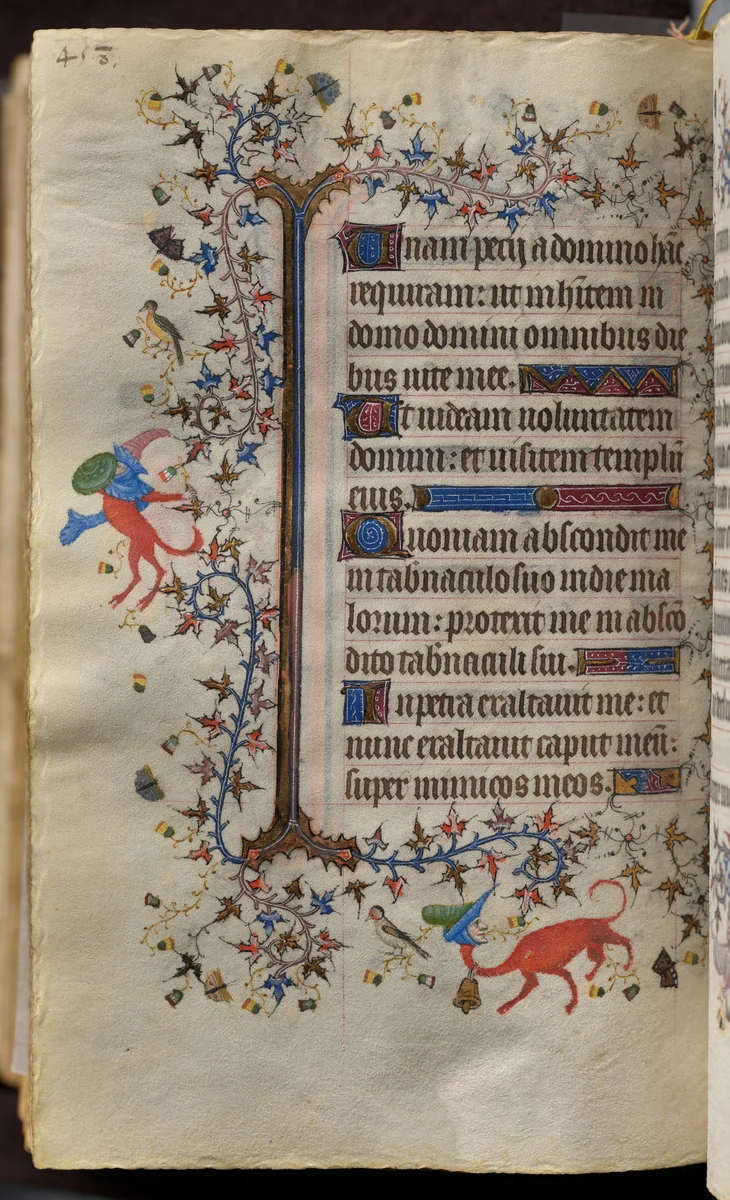 453.
Unam pecij a domino hāc
requiram: ut inhītem in
domo domini omnibus die
bus uite mee.
Ut uideam uoluntatem
domini: et uisitem templū
eius.
Quoniam abscondit me
in tab̄naculo suo in die ma
lorum: protexit me in absco
dito tab̄naculi sui.
In petra exaltauit me: et
nunc exaltauit caput meū:
super inimicos meos.